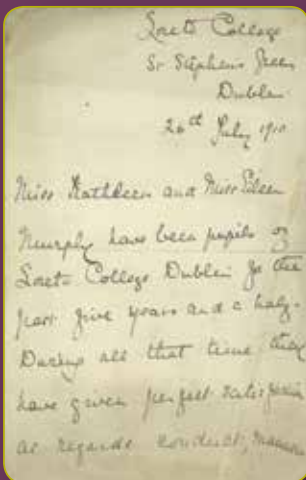 Loreto College
St Stephens Green
Dublin
26th July 1910
Miss Kathleen and Miss Eileen
Murphy have been pupils of
Loreto College Dublin for the
past five years and a half.
During all that time they
have given perfect satisfaction
as regards conduct, manners